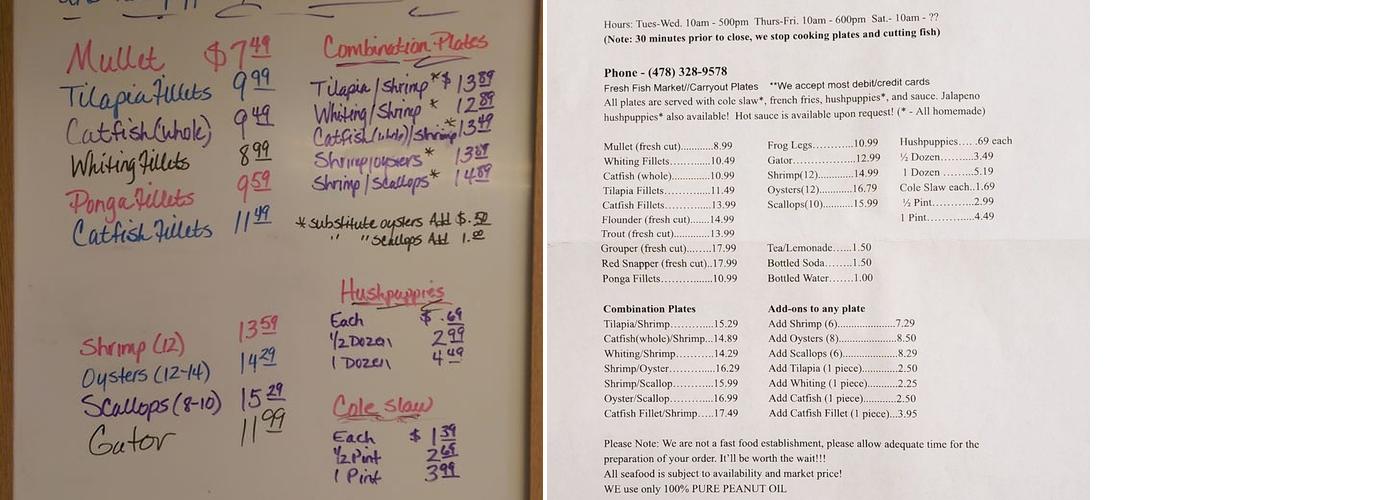 Mullet $7.49
Tilapia Fillets 9.99
Catfish (whole) 9.49
Whiting Fillets 8.99
Ponga Fillets 9.59
Catfish Fillets 11.49
Shrimp (12) 13.59
Oysters (12-14) 14.29
Scallops (8-10) 15.29
Gator 11.99
Combination Plates
Tilapia/Shrimp* $13.89
Whiting/Shrimp* 12.89
Catfish(whole)/Shrimp* 13.49
Shrimp/oysters* 13.89
Shrimp/Scallops* 14.89
* substitute oysters Add $.50
" " scallops Add 1.00
Hushpuppies
Each $.69
1/2 Dozen 2.99
1 Dozen 4.49
Cole Slaw
Each $1.39
1/2 Pint 2.69
1 Pint 3.99
Hours: Tues-Wed. 10am - 500pm Thurs-Fri. 10am - 600pm Sat.- 10am - ??
(Note: 30 minutes prior to close, we stop cooking plates and cutting fish)
Phone - (478) 328-9578
Fresh Fish Market//Carryout Plates **We accept most debit/credit cards
All plates are served with cole slaw*, french fries, hushpuppies*, and sauce. Jalapeno
hushpuppies* also available! Hot sauce is available upon request! (* - All homemade)
Mullet (fresh cut)..........8.99
Whiting Fillets............10.49
Catfish (whole)............10.99
Tilapia Fillets.............11.49
Catfish Fillets.............13.99
Flounder (fresh cut).......14.99
Trout (fresh cut)...........13.99
Grouper (fresh cut)........17.99
Red Snapper (fresh cut)..17.99
Ponga Fillets..............10.99
Frog Legs..........10.99
Gator................12.99
Shrimp(12)..........14.99
Oysters(12).........16.79
Scallops(10)........15.99
Tea/Lemonade......1.50
Bottled Soda........1.50
Bottled Water.......1.00
Hushpuppies.... .69 each
½ Dozen........3.49
1 Dozen ........5.19
Cole Slaw each..1.69
½ Pint...........2.99
1 Pint............4.49
Combination Plates
Tilapia/Shrimp.............15.29
Catfish(whole)/Shrimp...14.89
Whiting/Shrimp...........14.29
Shrimp/Oyster..............16.29
Shrimp/Scallop............15.99
Oyster/Scallop............16.99
Catfish Fillet/Shrimp.....17.49
Add-ons to any plate
Add Shrimp (6)......................7.29
Add Oysters (8)......................8.50
Add Scallops (6).....................8.29
Add Tilapia (1 piece).............2.50
Add Whiting (1 piece)...........2.25
Add Catfish (1 piece).............2.50
Add Catfish Fillet (1 piece)...3.95
Please Note: We are not a fast food establishment, please allow adequate time for the
preparation of your order. It'll be worth the wait!!!
All seafood is subject to availability and market price!
WE use only 100% PURE PEANUT OIL